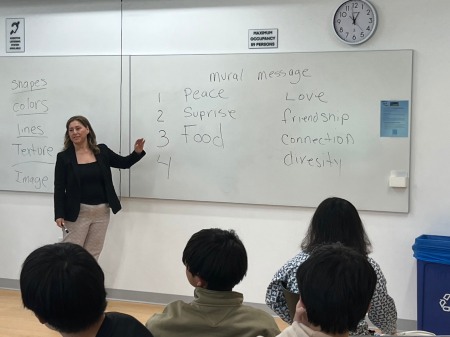 MAXIMUM
OCCUPANCY
IN PERSONS
shapes
colors
lines
Texture
Image
mural message
1 Peace Love
2 Suprise friendship
3 Food connection
4 divesity